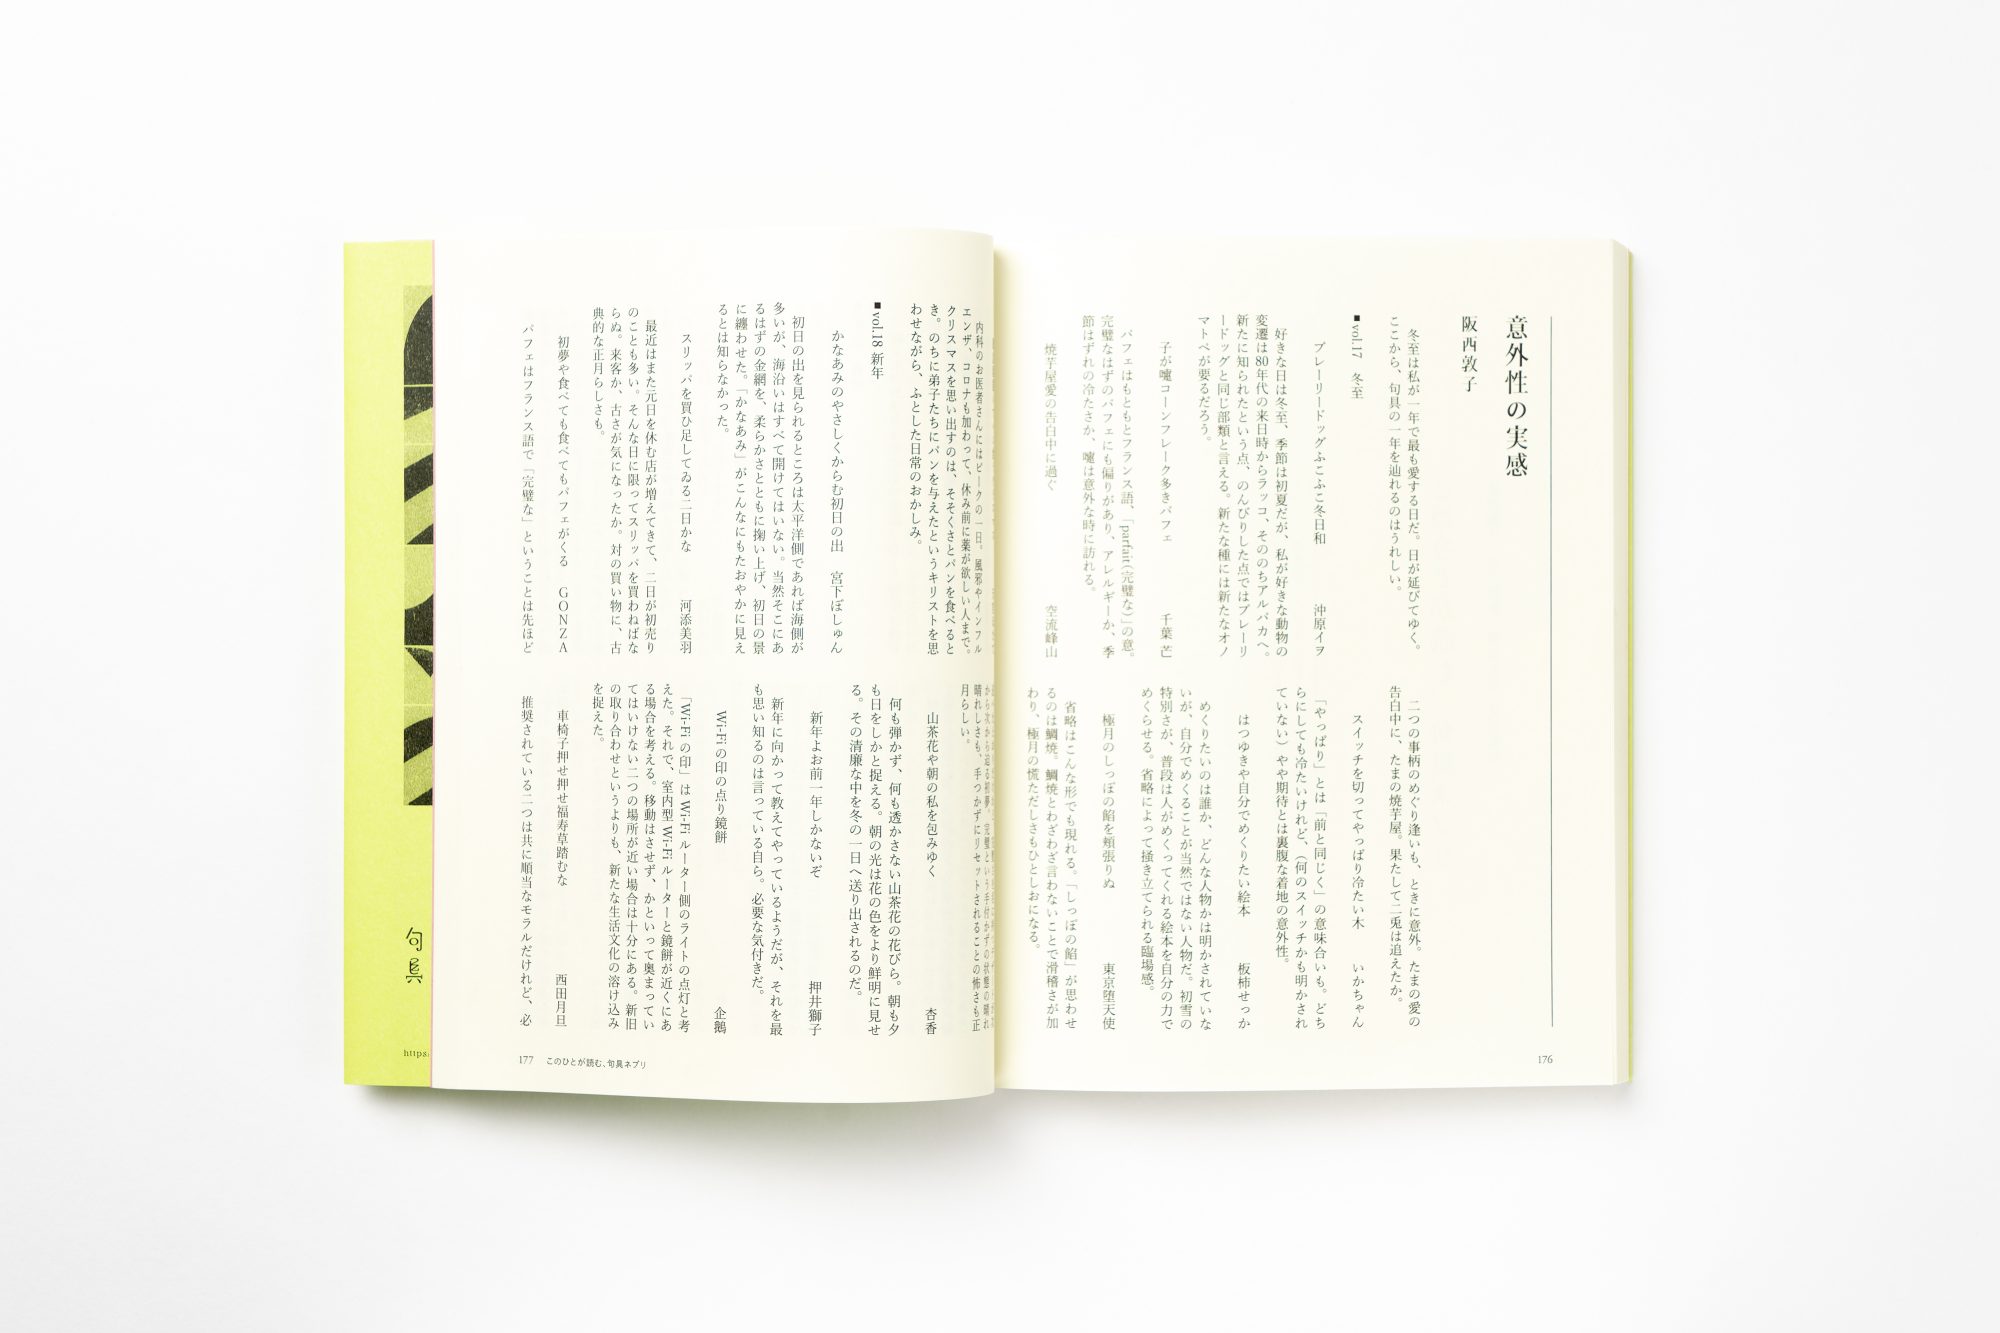 意外性の実感
阪西敦子
冬至は私が一年で最も愛する日だ。日が延びてゆく。
ここから、句具の一年を辿れるのはうれしい。
■vol.17 冬至
プレーリードッグふこふこ冬日和 沖原イヲ
好きな日は冬至、季節は初夏だが、私が好きな動物の
変遷は80年代の来日時からラッコ、そののちアルパカへ。
新たに知られたという点、のんびりした点ではプレーリ
ードッグと同じ部類と言える。新たな種には新たなオノ
マトペが要るだろう。
子が嚏コーンフレーク多きパフェ 千葉芒
パフェはもともとフランス語、「parfait（完璧な）」の意。
完璧なはずのパフェにも偏りがあり、アレルギーか、季
節はずれの冷たさか、嚏は意外な時に訪れる。
焼芋屋愛の告白中に過ぐ 空流峰山
二つの事柄のめぐり逢いも、ときに意外。たまの愛の
告白中に、たまの焼芋屋。果たして二兎は追えたか。
スイッチを切ってやっぱり冷たい木 いかちゃん
「やっぱり」とは「前と同じく」の意味合いも。どち
らにしても冷たいけれど、（何のスイッチかも明かされ
ていない）やや期待とは裏腹な着地の意外性。
はつゆきや自分でめくりたい絵本 板柿せっか
めくりたいのは誰か、どんな人物かは明かされていな
いが、自分でめくることが当然ではない人物だ。初雪の
特別さが、普段は人がめくってくれる絵本を自分の力で
めくらせる。省略によって掻き立てられる臨場感。
極月のしっぽの餡を頬張りぬ 東京堕天使
省略はこんな形でも現れる。「しっぽの餡」が思わせ
るのは鯛焼。鯛焼とわざわざ言わないことで滑稽さが加
わり、極月の慌ただしさもひとしおになる。
176
内科のお医者さんにはピークの一日。風邪やインフル
エンザ、コロナも加わって、休み前に薬が欲しい人まで。
クリスマスを思い出すのは、そそくさとパンを食べると
き。のちに弟子たちにパンを与えたというキリストを思
わせながら、ふとした日常のおかしみ。
■vol.18 新年
かなあみのやさしくからむ初日の出 宮下ぼしゅん
初日の出を見られるところは太平洋側であれば海側が
多いが、海沿いはすべて開けてはいない。当然そこにあ
るはずの金網を、柔らかさとともに掬い上げ、初日の景
に纏わせた。「かなあみ」がこんなにもたおやかに見え
るとは知らなかった。
スリッパを買ひ足してゐる二日かな 河添美羽
最近はまた元日を休む店が増えてきて、二日が初売り
のことも多い。そんな日に限ってスリッパを買わねばな
らぬ。来客か、古さが気になったか。対の買い物に、古
典的な正月らしさも。
初夢や食べても食べてもパフェがくる GONZA
パフェはフランス語で「完璧な」ということは先ほど
から次から迫る初夢。完璧という手付かずの状態の晴れ
晴れしさも、手つかずにリセットされることの怖さも正
月らしい。
山茶花や朝の私を包みゆく 杏香
何も弾かず、何も透かさない山茶花の花びら。朝も夕
も日をしかと捉える。朝の光は花の色をより鮮明に見せ
る。その清廉な中を冬の一日へ送り出されるのだ。
新年よお前一年しかないぞ 押井獅子
新年に向かって教えてやっているようだが、それを最
も思い知るのは言っている自ら。必要な気付きだ。
Wi-Fiの印の点り鏡餅 企鵝
「Wi-Fiの印」はWi-Fiルーター側のライトの点灯と考
えた。それで、室内型Wi-Fiルーターと鏡餅が近くにあ
る場合を考える。移動はさせず、かといって奥まってい
てはいけない二つの場所が近い場合は十分にある。新旧
の取り合わせというよりも、新たな生活文化の溶け込み
を捉えた。
車椅子押せ押せ福寿草踏むな 西田月旦
推奨されている二つは共に順当なモラルだけれど、必
177 このひとが読む、句具ネプリ
句具
https: